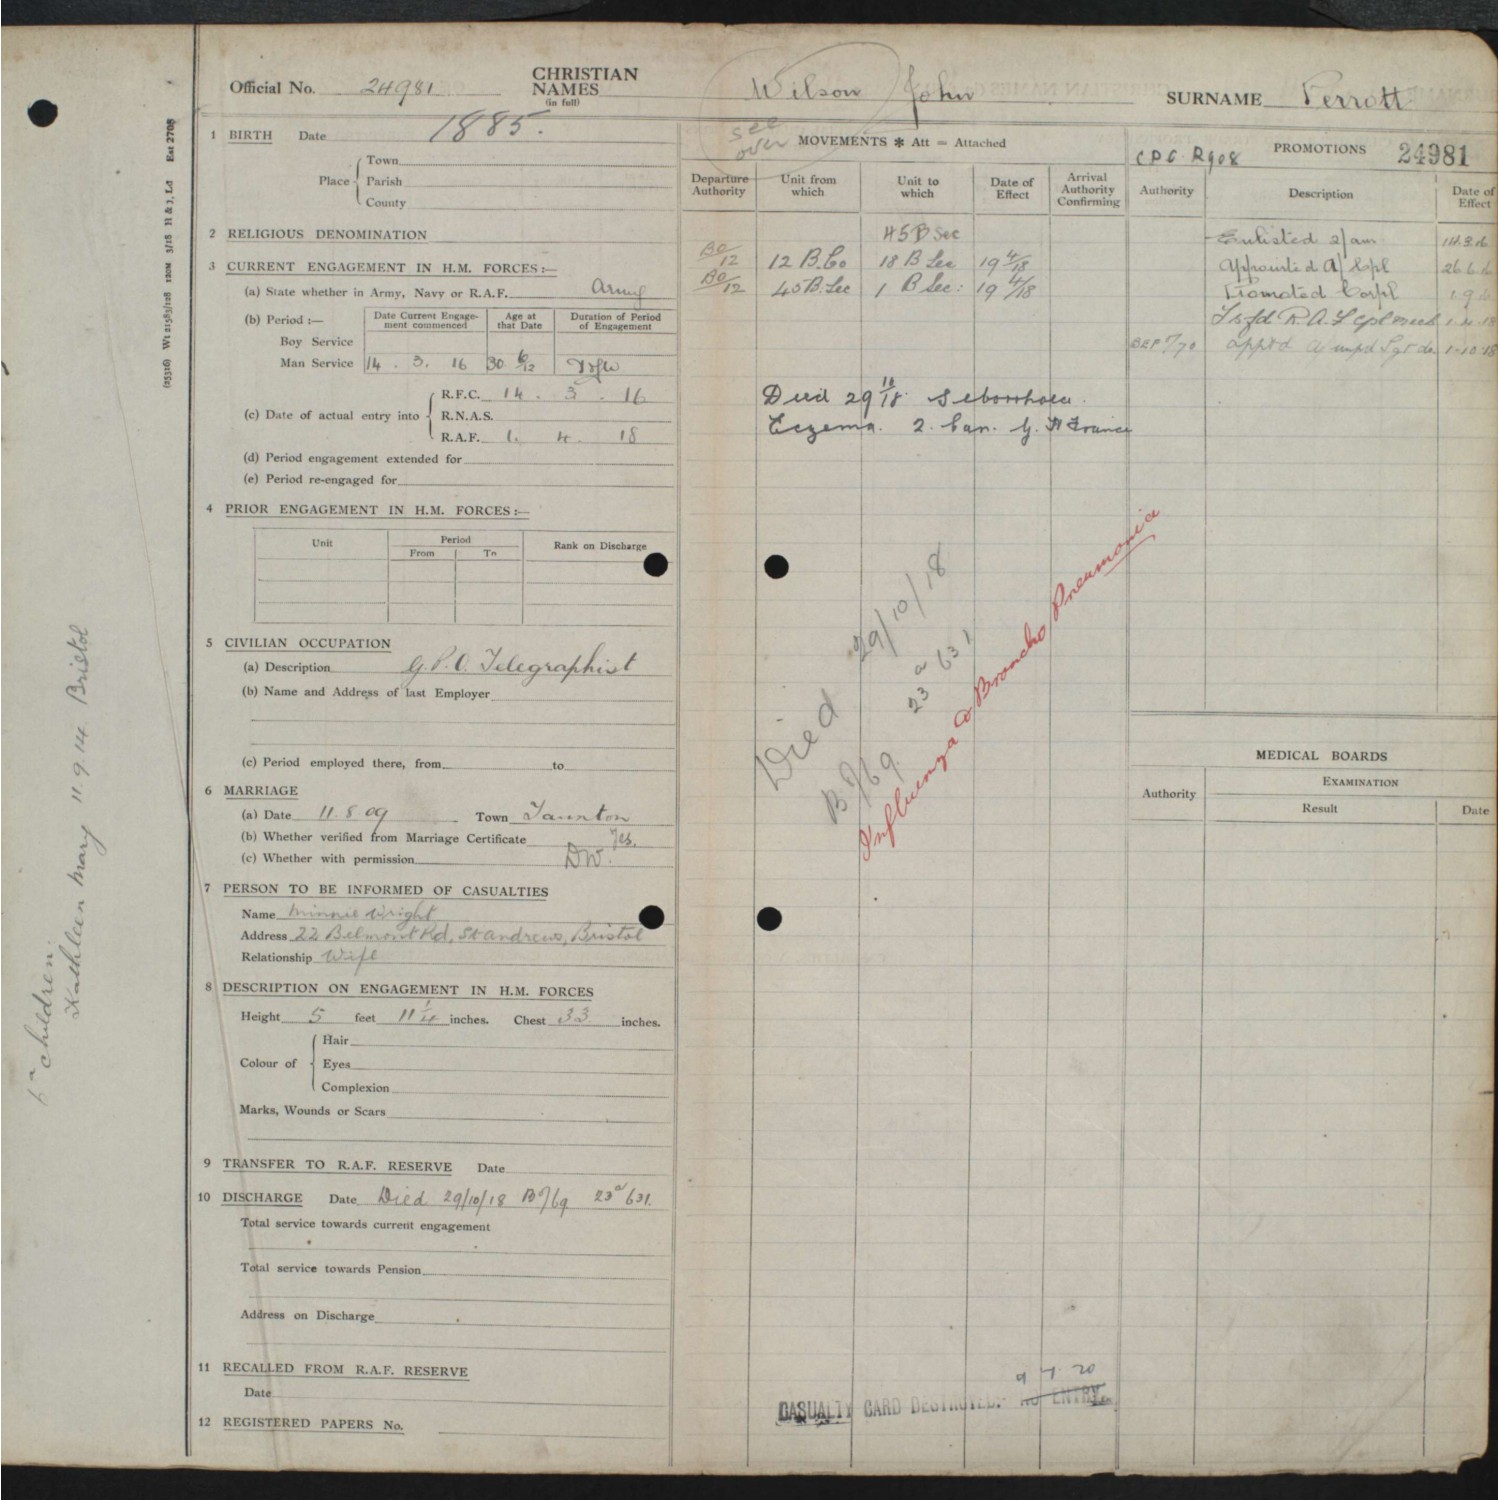 Official No. 24981 CHRISTIAN NAMES (in full) Wilson John SURNAME Perrott
see over
1 BIRTH Date 1885.
Place Town
Parish
County
2 RELIGIOUS DENOMINATION
3 CURRENT ENGAGEMENT IN H.M. FORCES:—
(a) State whether in Army, Navy or R.A.F. Army
(b) Period :— Date Current Engagement commenced Age at that Date Duration of Period of Engagement
Boy Service
Man Service 14 . 3. 16 30 6/12
(c) Date of actual entry into R.F.C. 14 . 3 . 16
R.N.A.S.
R.A.F. 1. 4. 18
(d) Period engagement extended for
(e) Period re-engaged for
4 PRIOR ENGAGEMENT IN H.M. FORCES :—
Unit Period Rank on Discharge
From To
5 CIVILIAN OCCUPATION
(a) Description G.P.O. Telegraphist
(b) Name and Address of last Employer
(c) Period employed there, from to
6 MARRIAGE
(a) Date 11.8.09 Town Taunton
(b) Whether verified from Marriage Certificate Yes.
(c) Whether with permission DW.
7 PERSON TO BE INFORMED OF CASUALTIES
Name Minnie Wright
Address 22 Belmont Rd, St Andrews, Bristol
Relationship Wife
8 DESCRIPTION ON ENGAGEMENT IN H.M. FORCES
Height 5 feet 11 1/4 inches. Chest 33 inches.
Colour of Hair
Eyes
Complexion
Marks, Wounds or Scars
9 TRANSFER TO R.A.F. RESERVE Date
10 DISCHARGE Date Died 29/10/18 23a 631.
Total service towards current engagement
Total service towards Pension
Address on Discharge
11 RECALLED FROM R.A.F. RESERVE
Date
12 REGISTERED PAPERS No.
MOVEMENTS * Att = Attached
Departure Authority Unit from which Unit to which Date of Effect Arrival Authority Confirming
45 B Sec
BO/12 12 B.Co 18 B Sec 19 4/18
BO/12 45 B.Sec 1 B Sec: 19 4/18
Died 29 10/18 Seborrhoea.
Eczema. 2. Can. G. H France
Died 29/10/18
23a 631
Influenza & Broncho Pneumonia
9 4 20
CASUALTY CARD DESTROYED. NO ENTRY.
PROMOTIONS 24981
Authority Description Date of Effect
Enlisted 2/am 14.3.16
Appointed A/Cpl 26.6.6
Promoted Corpl 1.9.6
1.4.18
1.10.18
MEDICAL BOARDS
Authority EXAMINATION
Result Date
children
Kathleen Mary 11.9.14 Bristol
Est 2708